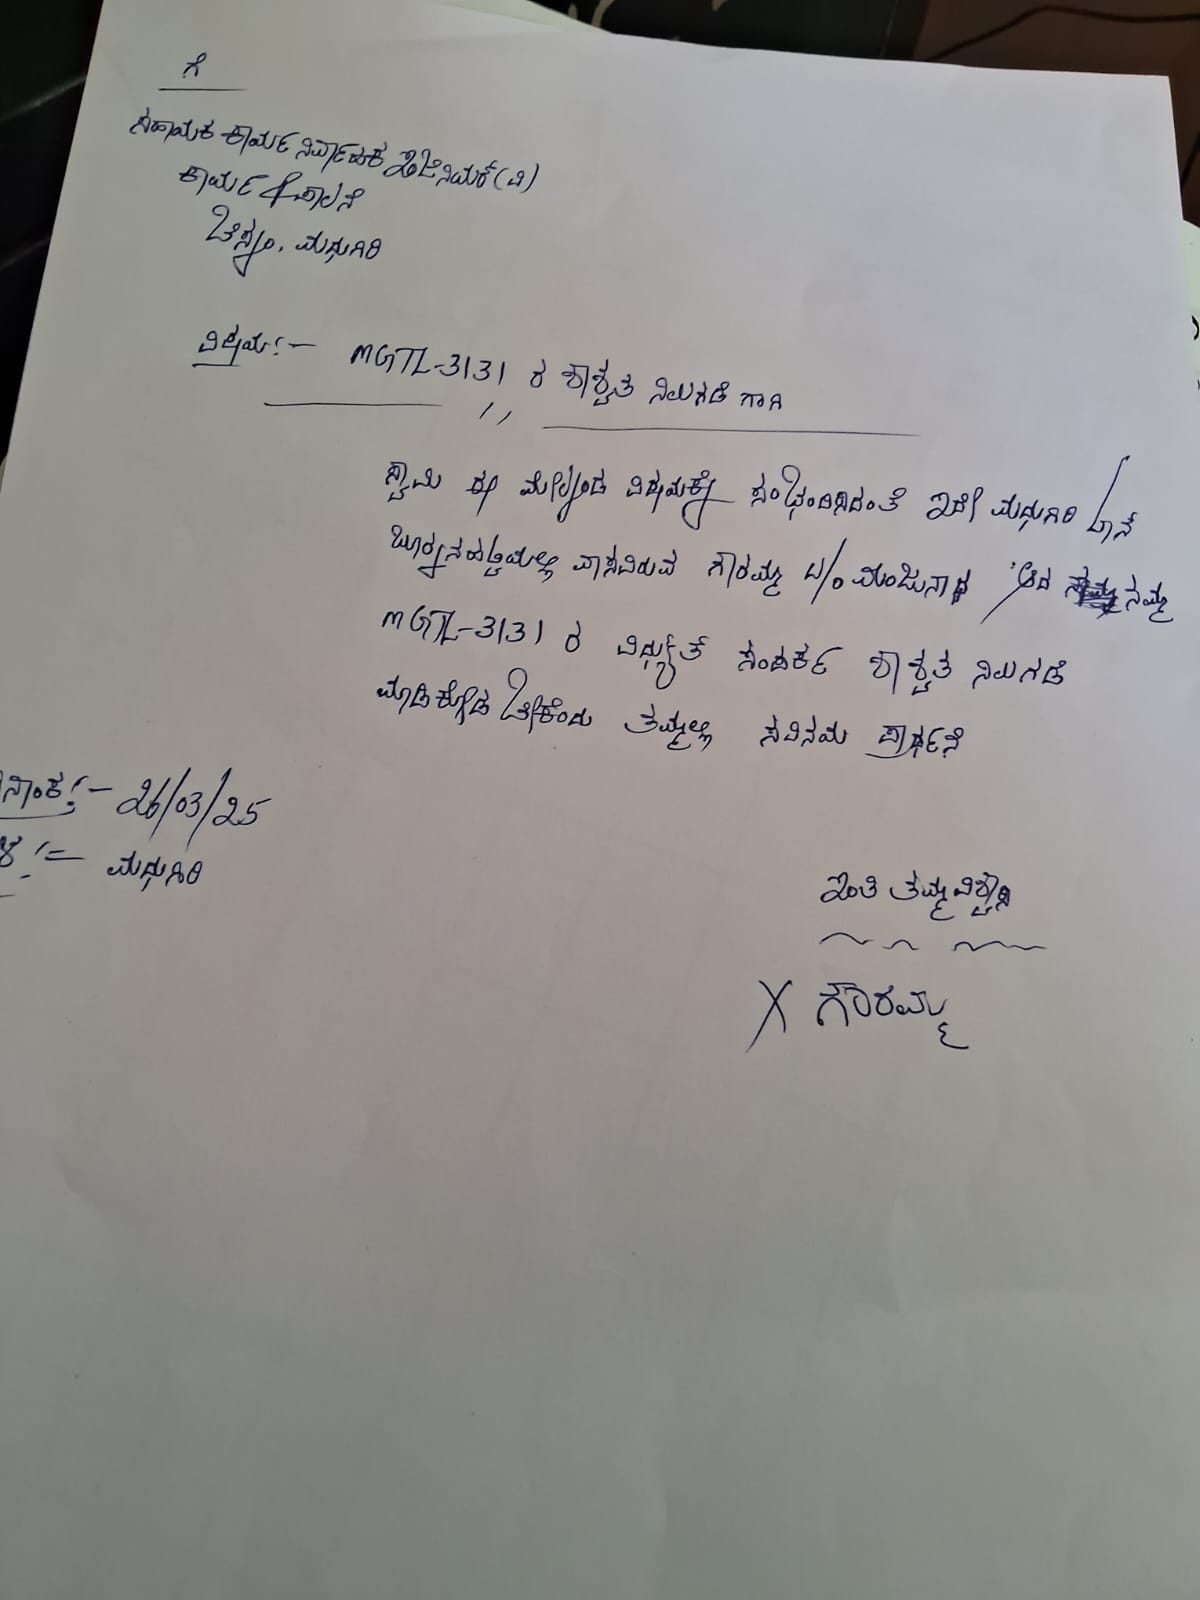 ಗೆ
ಸಹಾಯಕ ಕಾರ್ಯನಿರ್ವಾಹಕ ಇಂಜಿನಿಯರ್ (ವಿ)
ಕಾರ್ಯ & ಪಾಲನೆ
ಬೆಸ್ಕಾಂ, ಮಧುಗಿರಿ
ವಿಷಯ:- MGTL-3131 ರ ಶಾಶ್ವತ ನಿಲುಗಡೆ ಗಾಗಿ
ಸ್ವಾಮಿ ಈ ಮೇಲ್ಕಂಡ ವಿಷಯಕ್ಕೆ ಸಂಭಂದಿಸಿದಂತೆ ಇದೇ ಮಧುಗಿರಿ ಟೌನ್
ವಾಸವಿರುವ ಗೌರಮ್ಮ ಮಂಜುನಾಥ ಆದ ನಮ್ಮ
MGTL-3131 ರ ವಿದ್ಯುತ್ ಸಂಪರ್ಕ ಶಾಶ್ವತ ನಿಲುಗಡೆ
ಮಾಡಿಕೊಡಬೇಕೆಂದು ತಮ್ಮಲ್ಲಿ ಸವಿನಯ ಪ್ರಾರ್ಥನೆ
ನಾಂಕ:- 26/03/25
ಳ:- ಮಧುಗಿರಿ
ಇಂತಿ ತಮ್ಮ ವಿಶ್ವಾಸಿ
X ಗೌರಮ್ಮ